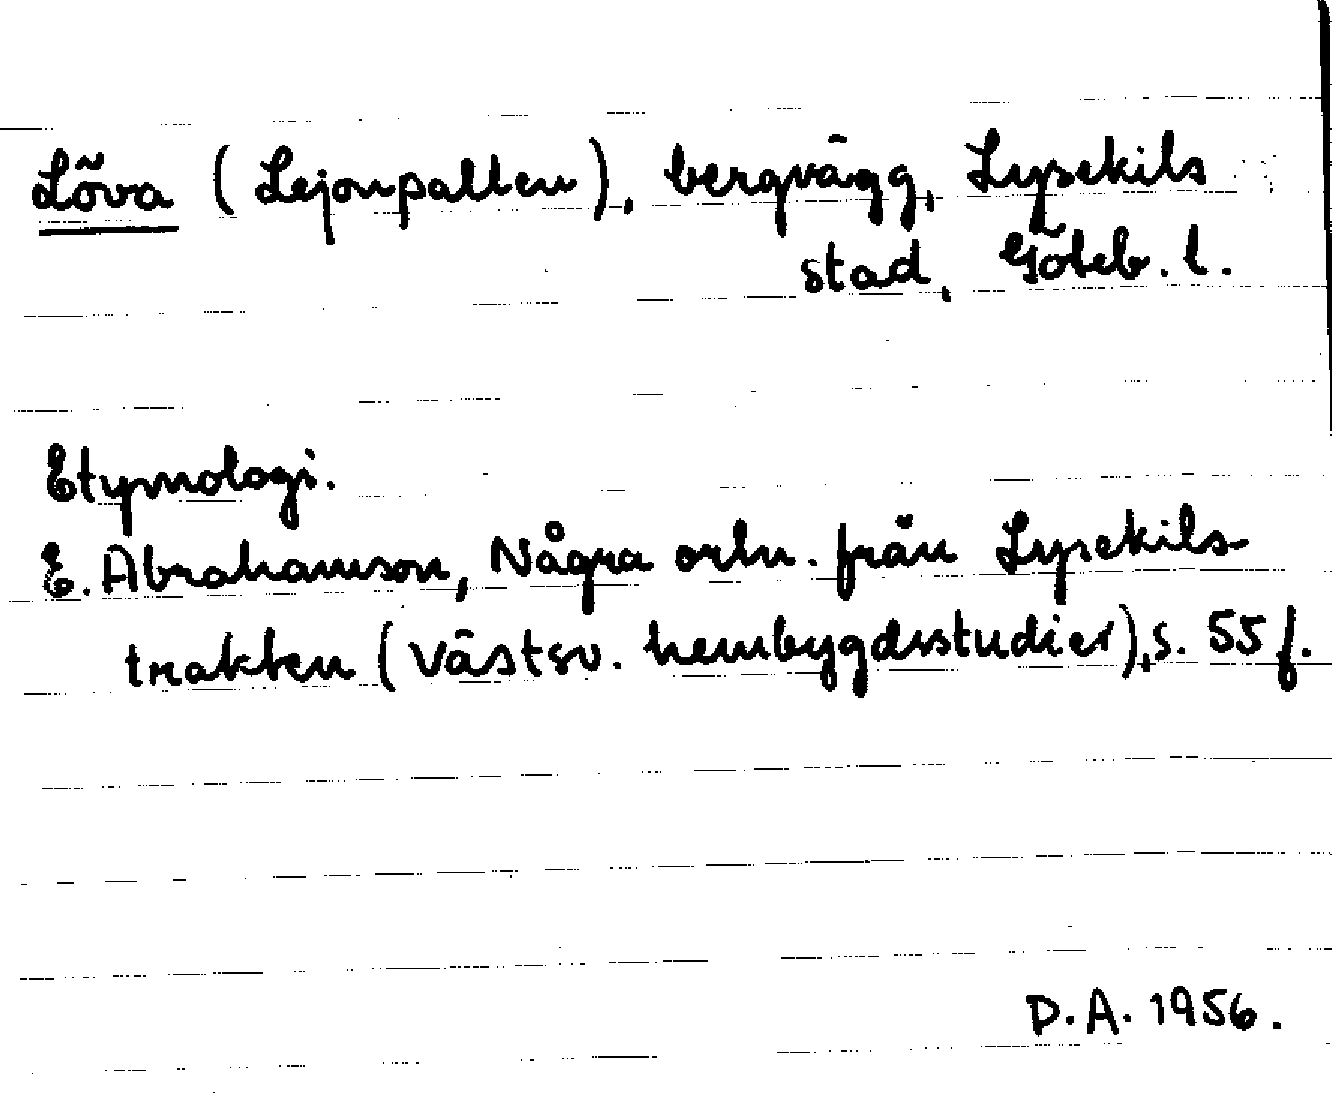 Löva (Lejonpallen), bergvägg, Lysekils
stad, Göteb. l.
Etymologi.
E. Abrahamson, Några ortn. från Lysekils-
trakten (Västsv. hembygdsstudier), s. 55 f.
D.A. 1956.